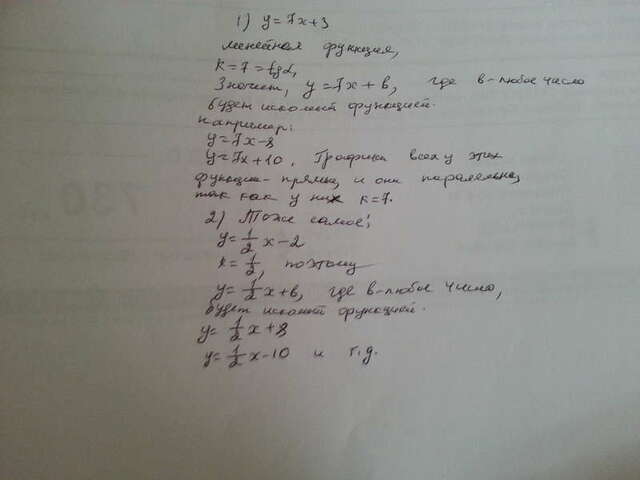 1) y = 7x+3
линейная функция,
k = 7 = tgα,
Значит, y = 7x + в, где в-любое число
будет искомой функцией.
Например:
y = 7x - 8
y = 7x + 10. Графики всех у этих
функции- прямые, и они паралельны,
так как у них k = 7.
2) Тоже самое:
y = 1/2 x - 2
k = 1/2, поэтому
y = 1/2 x + в, где в-любое число,
будет искомой функцией.
y = 1/2 x + 8
y = 1/2 x - 10 и т.д.